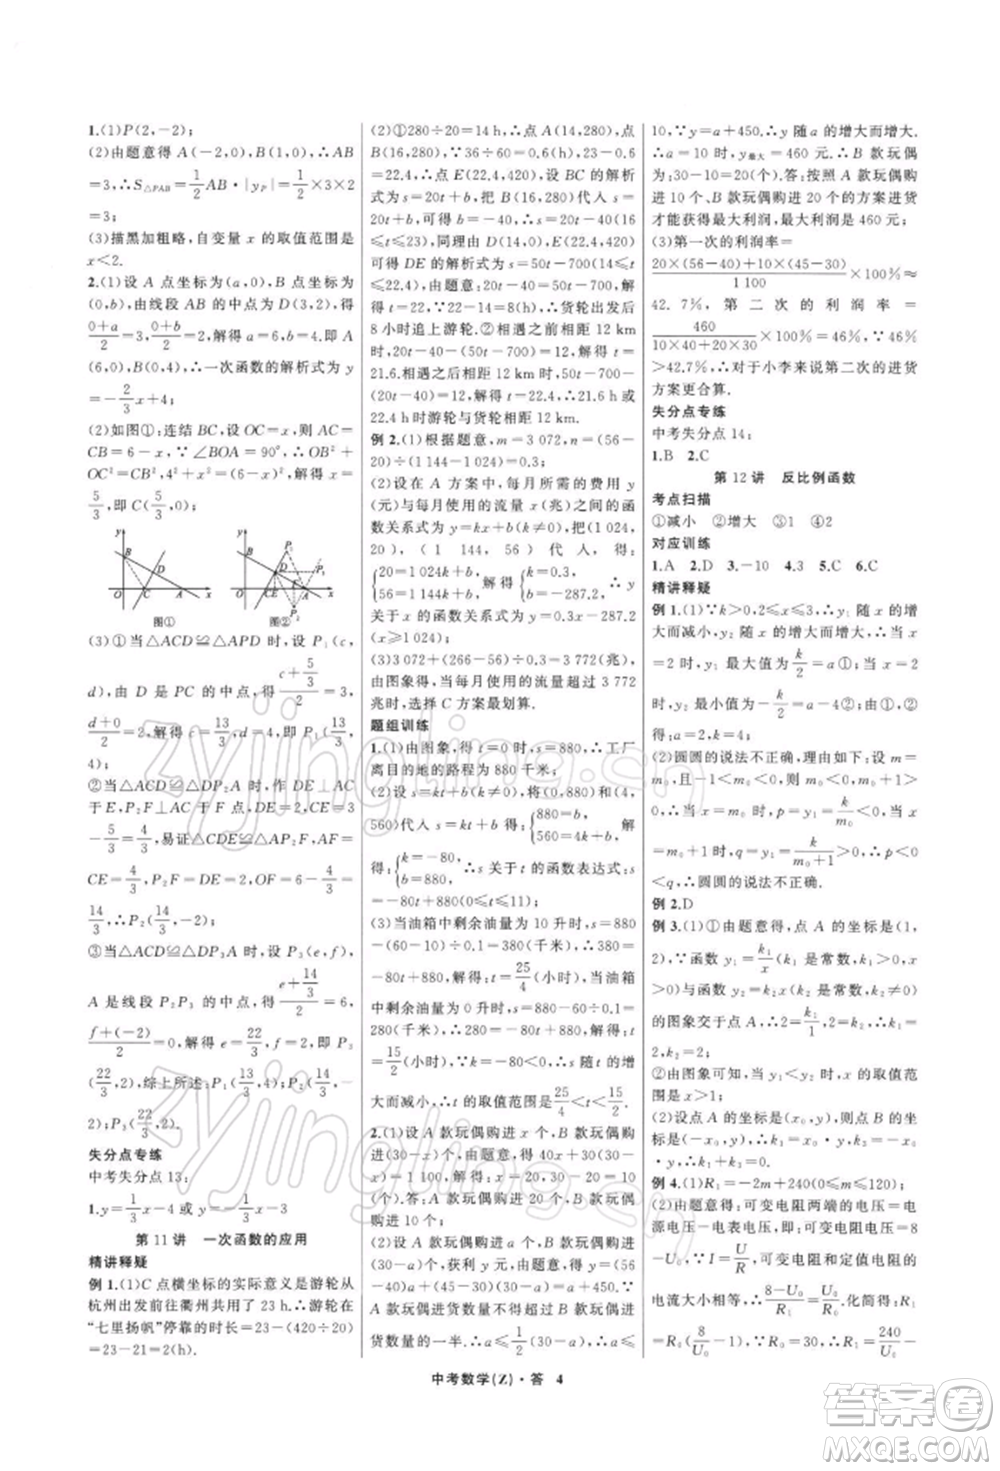 1.(1)P(2,-2);
(2)由题意得 A(-2,0),B(1,0),∴AB
=3,∴S△PAB=1/2 AB·|yP|=1/2×3×2
=3;
(3)描黑加粗略,自变量 x 的取值范围是
x<2.
2.(1)设 A 点坐标为(a,0),B 点坐标为
(0,b),由线段 AB 的中点为 D(3,2),得
(0+a)/2=3,(0+b)/2=2,解得 a=6,b=4,∴A
(6,0),B(0,4),∴一次函数的解析式为 y=
-2/3 x+4;
(2)如图①:连结 BC,设 OC=x,则 AC=
CB=6-x,∵∠BOA=90°,∴OB²+
OC²=CB²,4²+x²=(6-x)²,解得 x=
5/3,即 C(5/3,0);
图① 图②
(3)①当△ACD≌△APD 时,设 P₁(c,
d),由 D 是 PC 的中点,得 (c+5/3)/2=3,
(d+0)/2=2,解得 c=13/3,d=4,∴P₁(13/3,
4);
②当△ACD≌△DP₂A 时,作 DE⊥AC
于 E,P₂F⊥AC 于 F,DE=2,CE=3-
5/3=4/3,易证△CDE≌△AP₂F,AF=
CE=4/3,P₂F=DE=2,∴OF=6-4/3=
14/3,∴P₂(14/3,-2);
③当△ACD≌△DP₃A 时,设 P₃(e,f),
A 是线段 P₂P₃ 的中点,得 (e+14/3)/2=6,
(f+(-2))/2=0,解得 e=22/3,f=2,∴P₃
(22/3,2),综上所述:P₁(13/3,4);P₂(14/3,-
2);P₃(22/3,2).
失分点专练
中考失分点 13:
1.y=1/3 x-4 或 y=-1/3 x-3
第 11 讲 一次函数的应用
精讲释疑
例 1.(1)C 点横坐标的实际意义是游轮从
杭州出发前往衢州共用了 23 h.∴游轮在
“七里扬帆”停靠的时长=23-(420÷20)
=23-21=2(h).
(2)①280÷20=14 h,∴点 A(14,280),点
B(16,280),∵36÷60=0.6(h),23-0.6=
22.4,∴点 E(22.4,420),设 BC 的解析式
为 s=20t+b,把 B(16,280)代入 s=20t+
b,可得 b=-40,∴s=20t-40(16≤t
≤23),同理由 D(14,0),E(22.4,420)
可得 DE 的解析式为 s=50t-700(14≤t≤
22.4),由题意:20t-40=50t-700,解得 t
=22,∵22-14=8(h),∴货轮出发后
8 小时追上游轮.②相遇之前相距 12 km
时,20t-40-(50t-700)=12,解得 t=
21.6.相遇之后相距 12 km 时,50t-700-
(20t-40)=12,解得 t=22.4,∴21.6 h 或
22.4 h 时游轮与货轮相距 12 km.
例 2.(1)根据题意,m=3 072,n=(56-
20)÷(1 144-1 024)=0.3;
(2)设在 A 方案中,每月使用的费用 y
(元)与每月使用的流量 x(兆)之间的函
数关系式为 y=kx+b(k≠0),把(1 024,
20),(1 144,56)代入,得:
{20=1 024k+b, 56=1 144k+b, ∴{k=0.3, b=-287.2, ∴y
关于 x 的函数关系式为 y=0.3x-287.2
(x≥1 024);
(3)3 072+(266-56)÷0.3=3 772(兆),
由图象得,当每月使用的流量超过 3 772
兆时,选择 C 方案最划算.
题组训练
1.(1)由图象,得 t=0 时,s=880,∴工厂
离目的地的路程为 880 千米;
(2)设 s=kt+b(k≠0),将(0,880)和(4,
560)代入 s=kt+b 得:{880=b, 560=4k+b, 解
得:{k=-80, b=880, ∴s 关于 t 的函数表达式:s=
-80t+880(0≤t≤11);
(3)当油箱中剩余油量为 10 升时,s=880
-(60-10)÷0.1=380(千米),∴380=
-80t+880,解得:t=25/4(小时),当油箱
中剩余油量为 0 升时,s=880-60÷0.1=
280(千米),∴280=-80t+880,解得:t=
15/2(小时),∵k=-80<0,∴s 随 t 的增
大而减小,∴t 的取值范围是 25/4<t<15/2.
2.(1)设 A 款玩偶购进 x 个,B 款玩偶购进
(30-x)个,由题意,得 40x+30(30-x)
=1 100,解得:x=20.30-20=10(个).
答:A 款玩偶购进 20 个,B 款玩偶购
进 10 个;
(2)设 A 款玩偶购进 a 个,B 款玩偶购进
(30-a)个,获利 y 元,由题意,得 y=
(56-40)a+(45-30)(30-a)=a+450.
∵A 款玩偶进货数量不得超过 B 款玩偶
进货数量的一半.∴a≤1/2(30-a),∴a≤
10,∵y=a+450.∴y 随 a 的增大而增大.
∴a=10 时,y最大=460 元.∴B 款玩偶
为:30-10=20(个).答:按照 A 款玩偶购
进 10 个、B 款玩偶购进 20 个的方案进货
才能获得最大利润,最大利润是 460 元;
(3)第一次的利润率=
(20×(56-40)+10×(45-30))/1 100 ×100%≈
42.7%,第二次的利润率=
460/(10×40+20×30)×100%=46%,∵46%
>42.7%,∴对于小李来说第二次的进货
方案更合算.
失分点专练
中考失分点 14:
1.B 2.C
第 12 讲 反比例函数
考点扫描
①减小 ②增大 ③1 ④2
对应训练
1.A 2.D 3.-10 4.3 5.C 6.C
精讲释疑
例 1.(1)∵k>0,2≤x≤3,∴y₁ 随 x 的增
大而减小,y₂ 随 x 的增大而增大,∴当 x=
2 时,y₁ 最大值为 k/2=a①;当 x=2 时,y₂
最小值为-k/2=a-4②;由①,②
得:a=2,k=4;
(2)圆圆的说法不正确,理由如下:设 m=
m₀,且-1<m₀<0,则 m₀<0,m₀+1>0,
∴当 x=m₀ 时,p=y₁=k/m₀<0,当 x=
m₀+1 时,q=y₁=k/(m₀+1)>0,∴p<0
<q,∴圆圆的说法不正确.
例 2.D
例 3.(1)①由题意得,点 A 的坐标是(1,
2),∵函数 y₁=k₁/x(k₁ 是常数,k₁>0,x
>0)与函数 y₂=k₂x(k₂ 是常数,k₂≠0)
的图象交于点 A,∴2=k₁/1,2=k₂,∴k₁=
2,k₂=2;
②由图象可知,当 y₁<y₂ 时,x 的取值范
围是 x>1;
(2)设点 A 的坐标是(x₀,y),则点 B 的坐
标是(-x₀,y),∴k₁=x₀·y,k₃=-x₀·
y,∴k₁+k₃=0.
例 4.(1)R₁=-2m+240(0≤m≤120);
(2)由题意得:可变电阻两端的电压=电
源电压-电表电压,即:可变电阻电压=8
-U₀,∵I=U/R,可变电阻和定值电阻
的电流大小相等,∴(8-U₀)/R₁=U₀/R₀.化简得:R₁
=R₀(8/U₀-1),∵R₀=30,∴R₁=240/U₀-
中考数学(Z)·答 4
zyjingling.cn
zyjingling.cn
答案圈
MXQE.COM